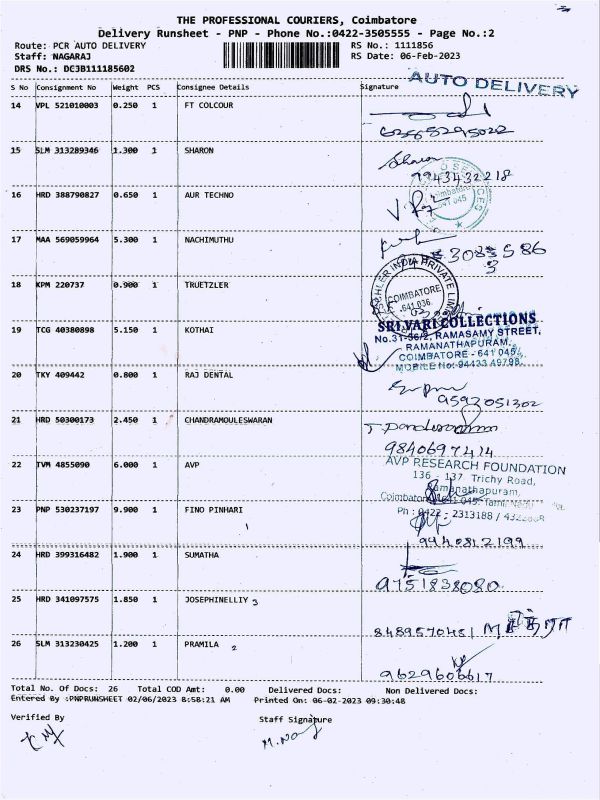 THE PROFESSIONAL COURIERS, Coimbatore
Delivery Runsheet - PNP - Phone No.:0422-3505555 - Page No.:2
Route: PCR AUTO DELIVERY
RS No.: 1111856
Staff: NAGARAJ
RS Date: 06-Feb-2023
DRS No.: DCJB111185602
AUTO DELIVERY
S No Consignment No Weight PCS Consignee Details Signature
14 VPL 521010003 0.250 1 FT COLCOUR
15 SLM 313289346 1.300 1 SHARON
Sharon
7943432218
16 HRD 388790827 0.650 1 AUR TECHNO
17 MAA 569059964 5.300 1 NACHIMUTHU
18 KPM 220737 0.900 1 TRUETZLER
INDIA PRIVATE
COIMBATORE
641 036
19 TCG 40380898 5.150 1 KOTHAI
SRI VARI COLLECTIONS
No.31-36/2, RAMASAMY STREET,
RAMANATHAPURAM,
COIMBATORE - 641 045.
MOBILE No: 94433 49798.
20 TKY 409442 0.800 1 RAJ DENTAL
9597051302
21 HRD 50300173 2.450 1 CHANDRAMOULESWARAN
9840697414
22 TVM 4855090 6.000 1 AVP
AVP RESEARCH FOUNDATION
136 - 137 Trichy Road,
Ramanathapuram,
Coimbatore 641 045. Tamil Nadu
23 PNP 530237197 9.900 1 FINO PINHARI
Ph : 0422 - 2313188
1
9440812199
24 HRD 399316482 1.900 1 SUMATHA
9751838080
25 HRD 341097575 1.850 1 JOSEPHINELLIY 3
8489570451
26 SLM 313230425 1.200 1 PRAMILA 2
9629606617
Total No. Of Docs: 26 Total COD Amt: 0.00 Delivered Docs: Non Delivered Docs:
Entered By :PNPRUNSHEET 02/06/2023 8:58:21 AM Printed On: 06-02-2023 09:30:48
Verified By
Staff Signature